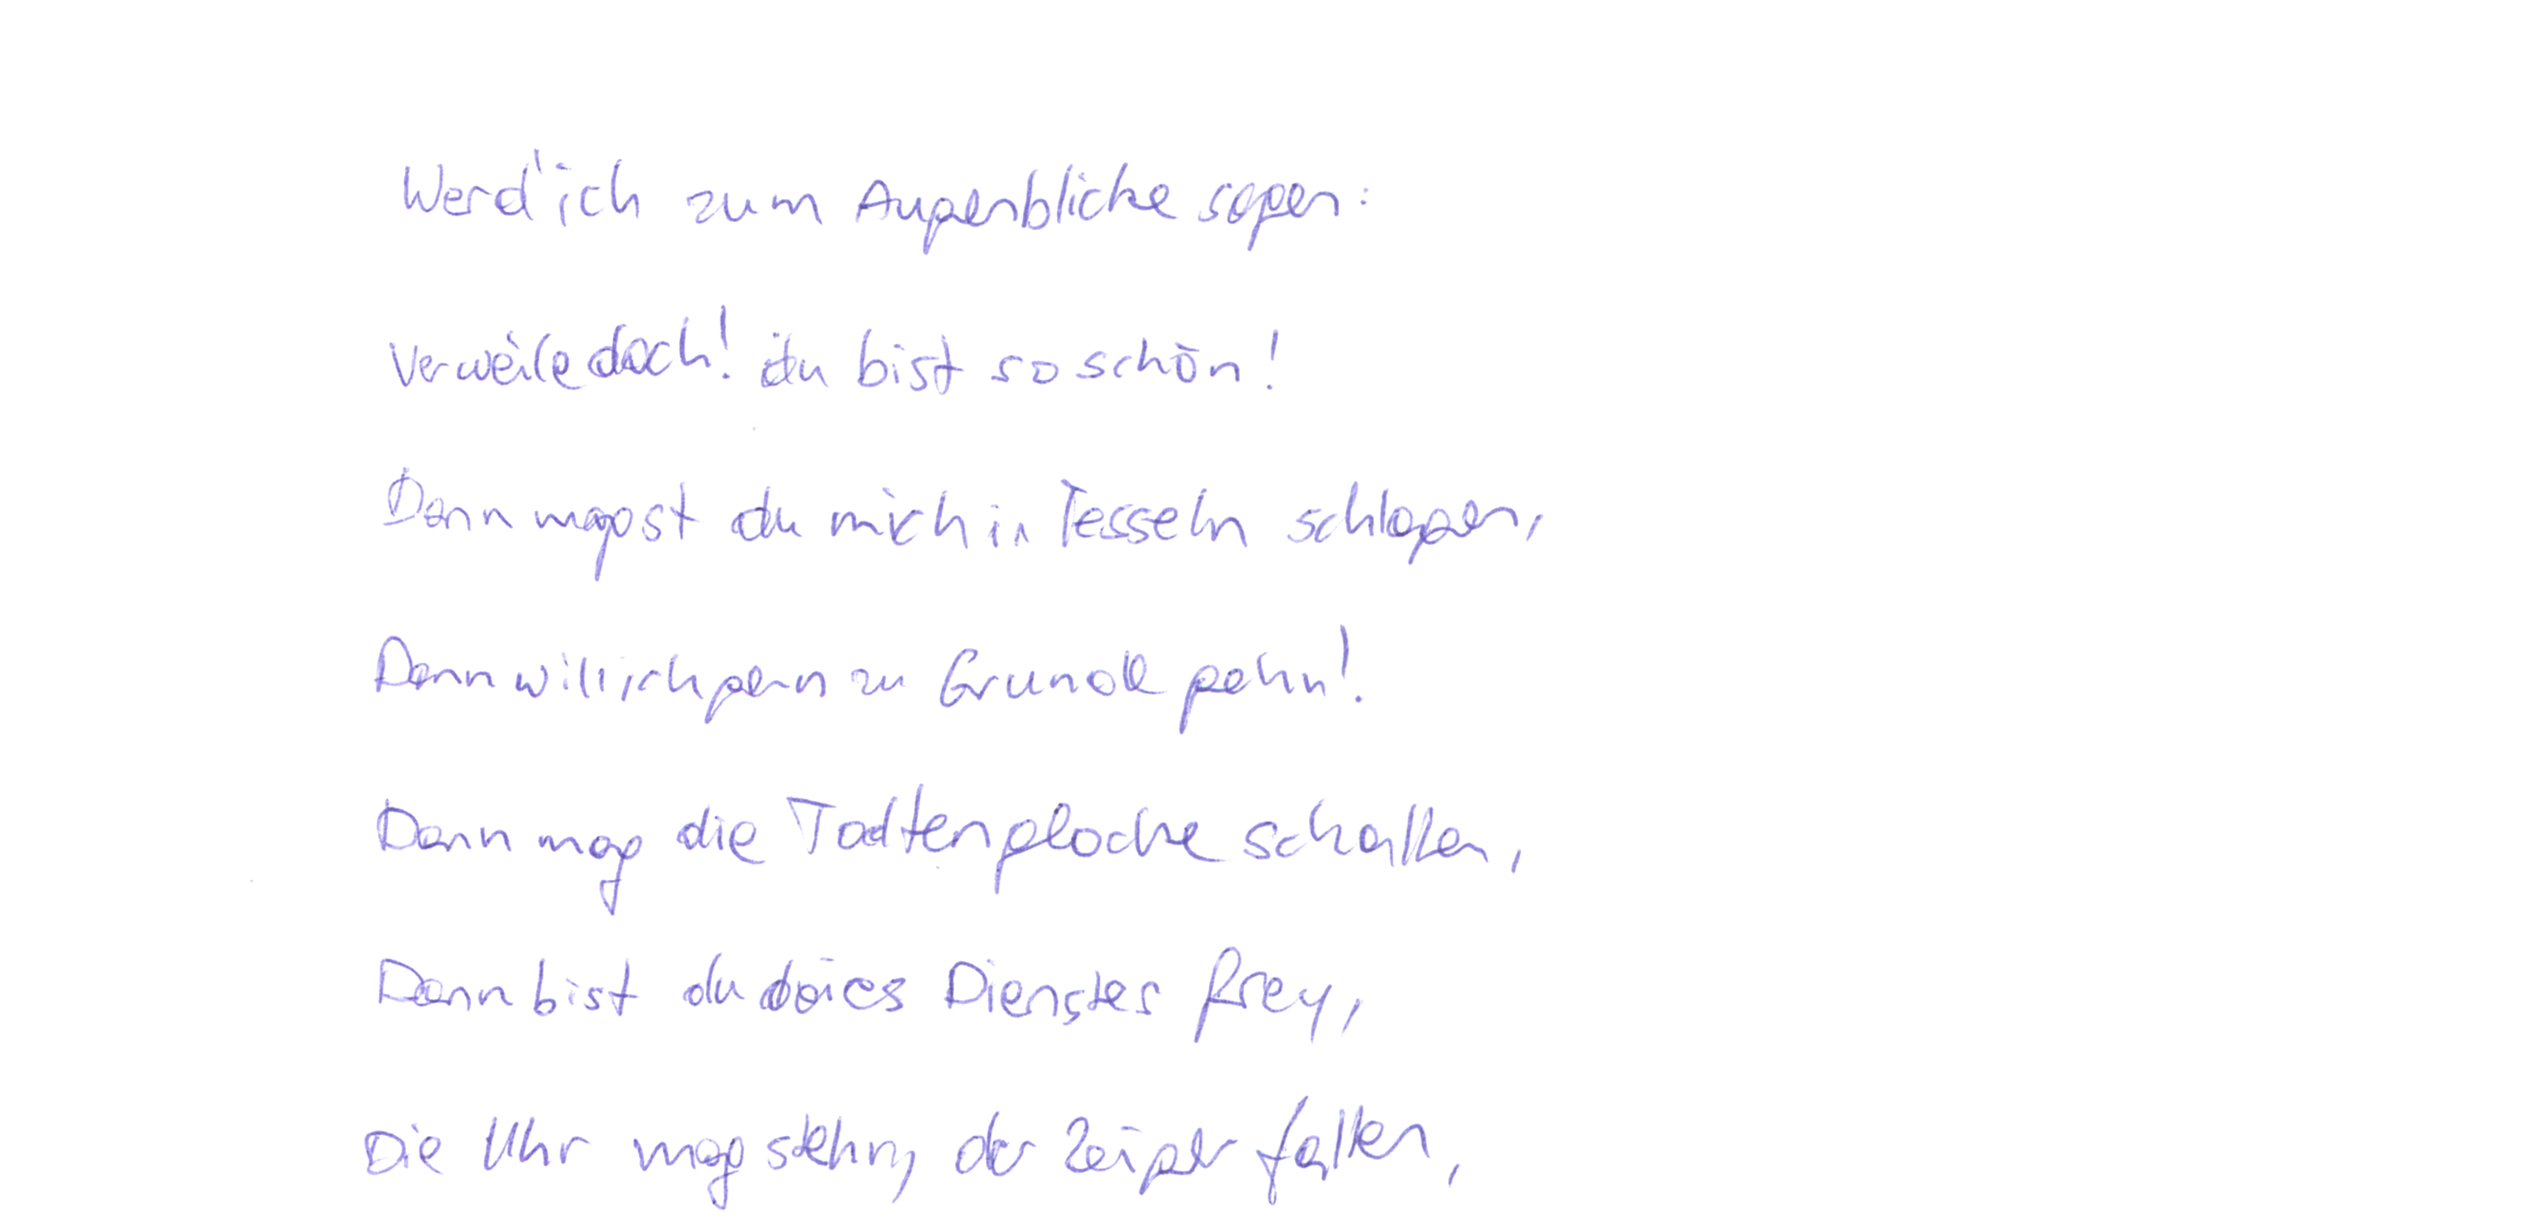 Werd' ich zum Augenblicke sagen:
Verweile doch! du bist so schön!
Dann magst du mich in Fesseln schlagen,
Dann will ich gern zu Grunde gehn!
Dann mag die Todtenglocke schallen,
Dann bist du deines Dienstes frey,
Die Uhr mag stehn, der Zeiger fallen,